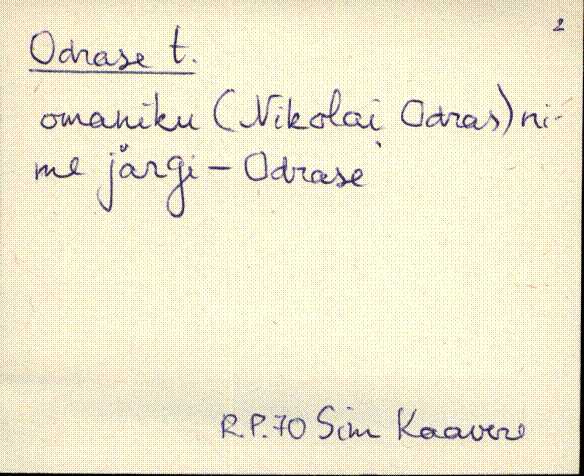 2
Odrase t.
omaniku (Nikolai Odras) ni-
me järgi - Odrase
R.P.70 Sim Kaavere